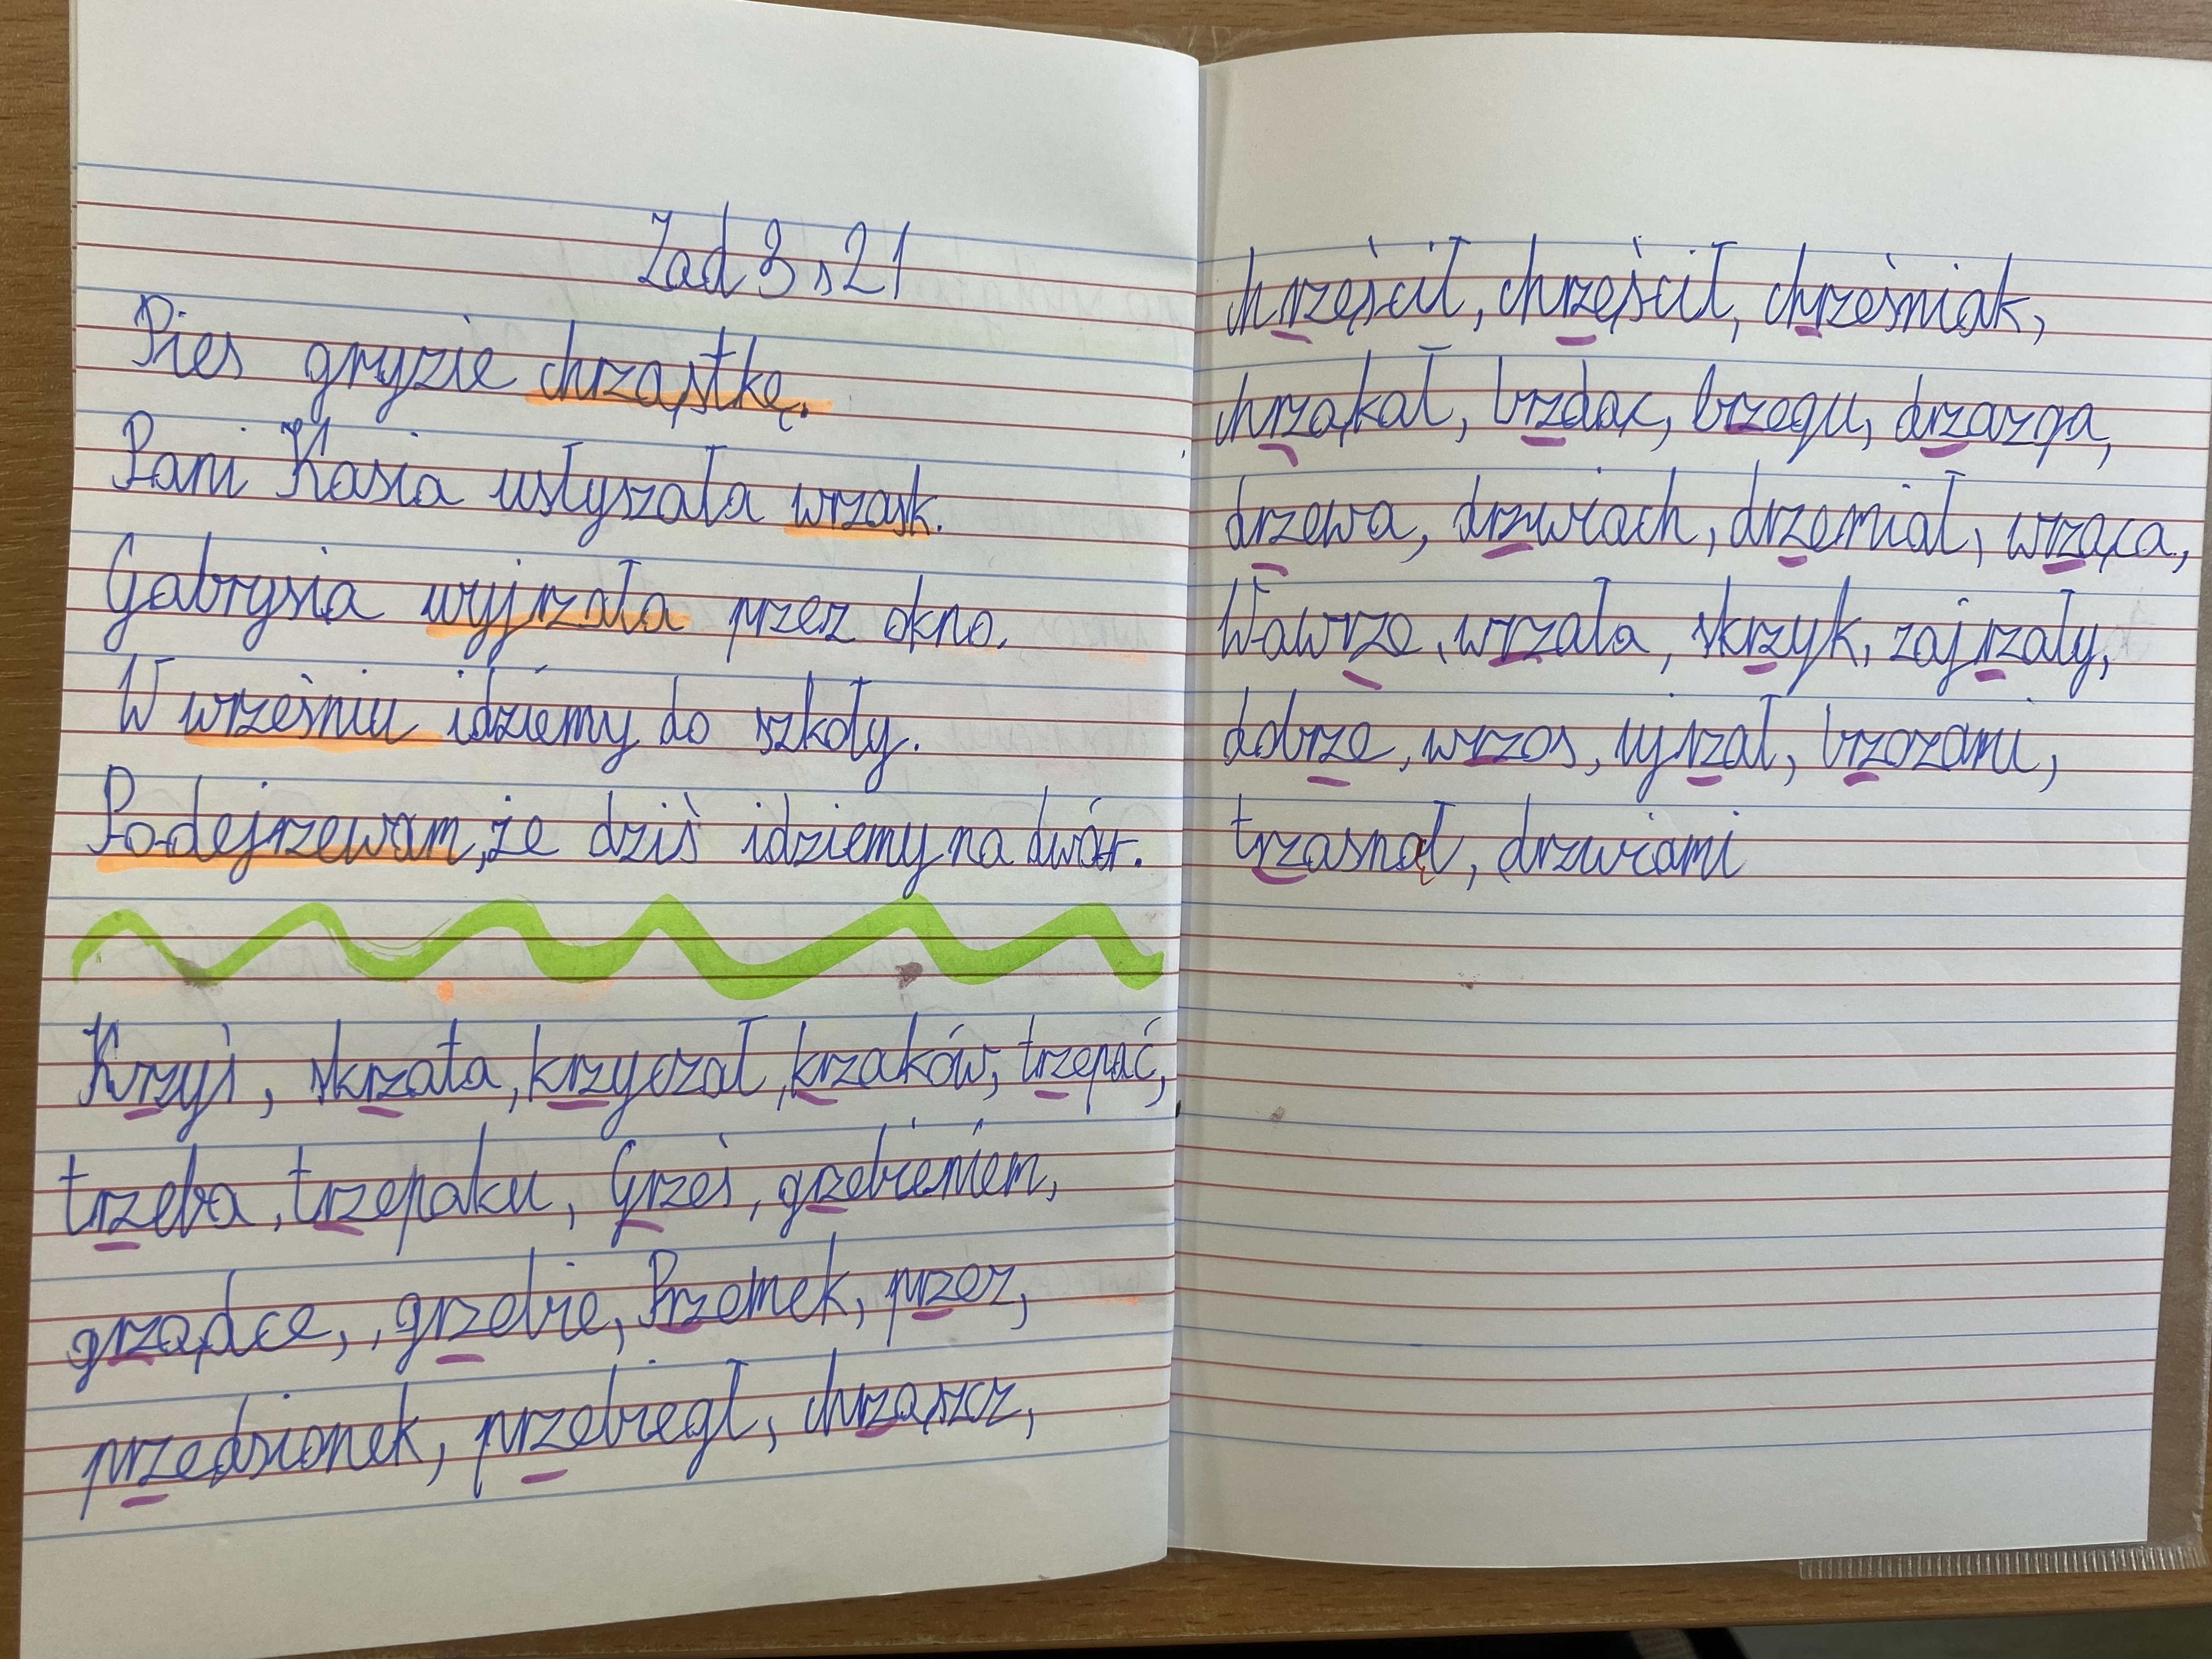 Zad 3 s 21
Pies gryzie chrząstkę.
Pani Kasia usłyszała wrzask.
Gabrysia wyjrzała przez okno.
W wrześniu idziemy do szkoły.
Podejrzewam, że dziś idziemy na dwór.
Krzyś, skrzata, krzyczał, krzaków, trzepać,
trzeba, trzepaku, Grześ, grzebieniem,
grządce, grzebie, Przemek, przez,
przedsionek, przebiegł, chrząszcz,
chrzęścił, chrzęścił, chrześniak,
chrząkał, brzdąc, brzegu, drzazga,
drzewa, drzwiach, drzemiał, wrząca,
Wawrze, wrzała, skrzyk, zajrzały,
dobrze, wrzos, ujrzał, brzozami,
trzasnął, drzwiami